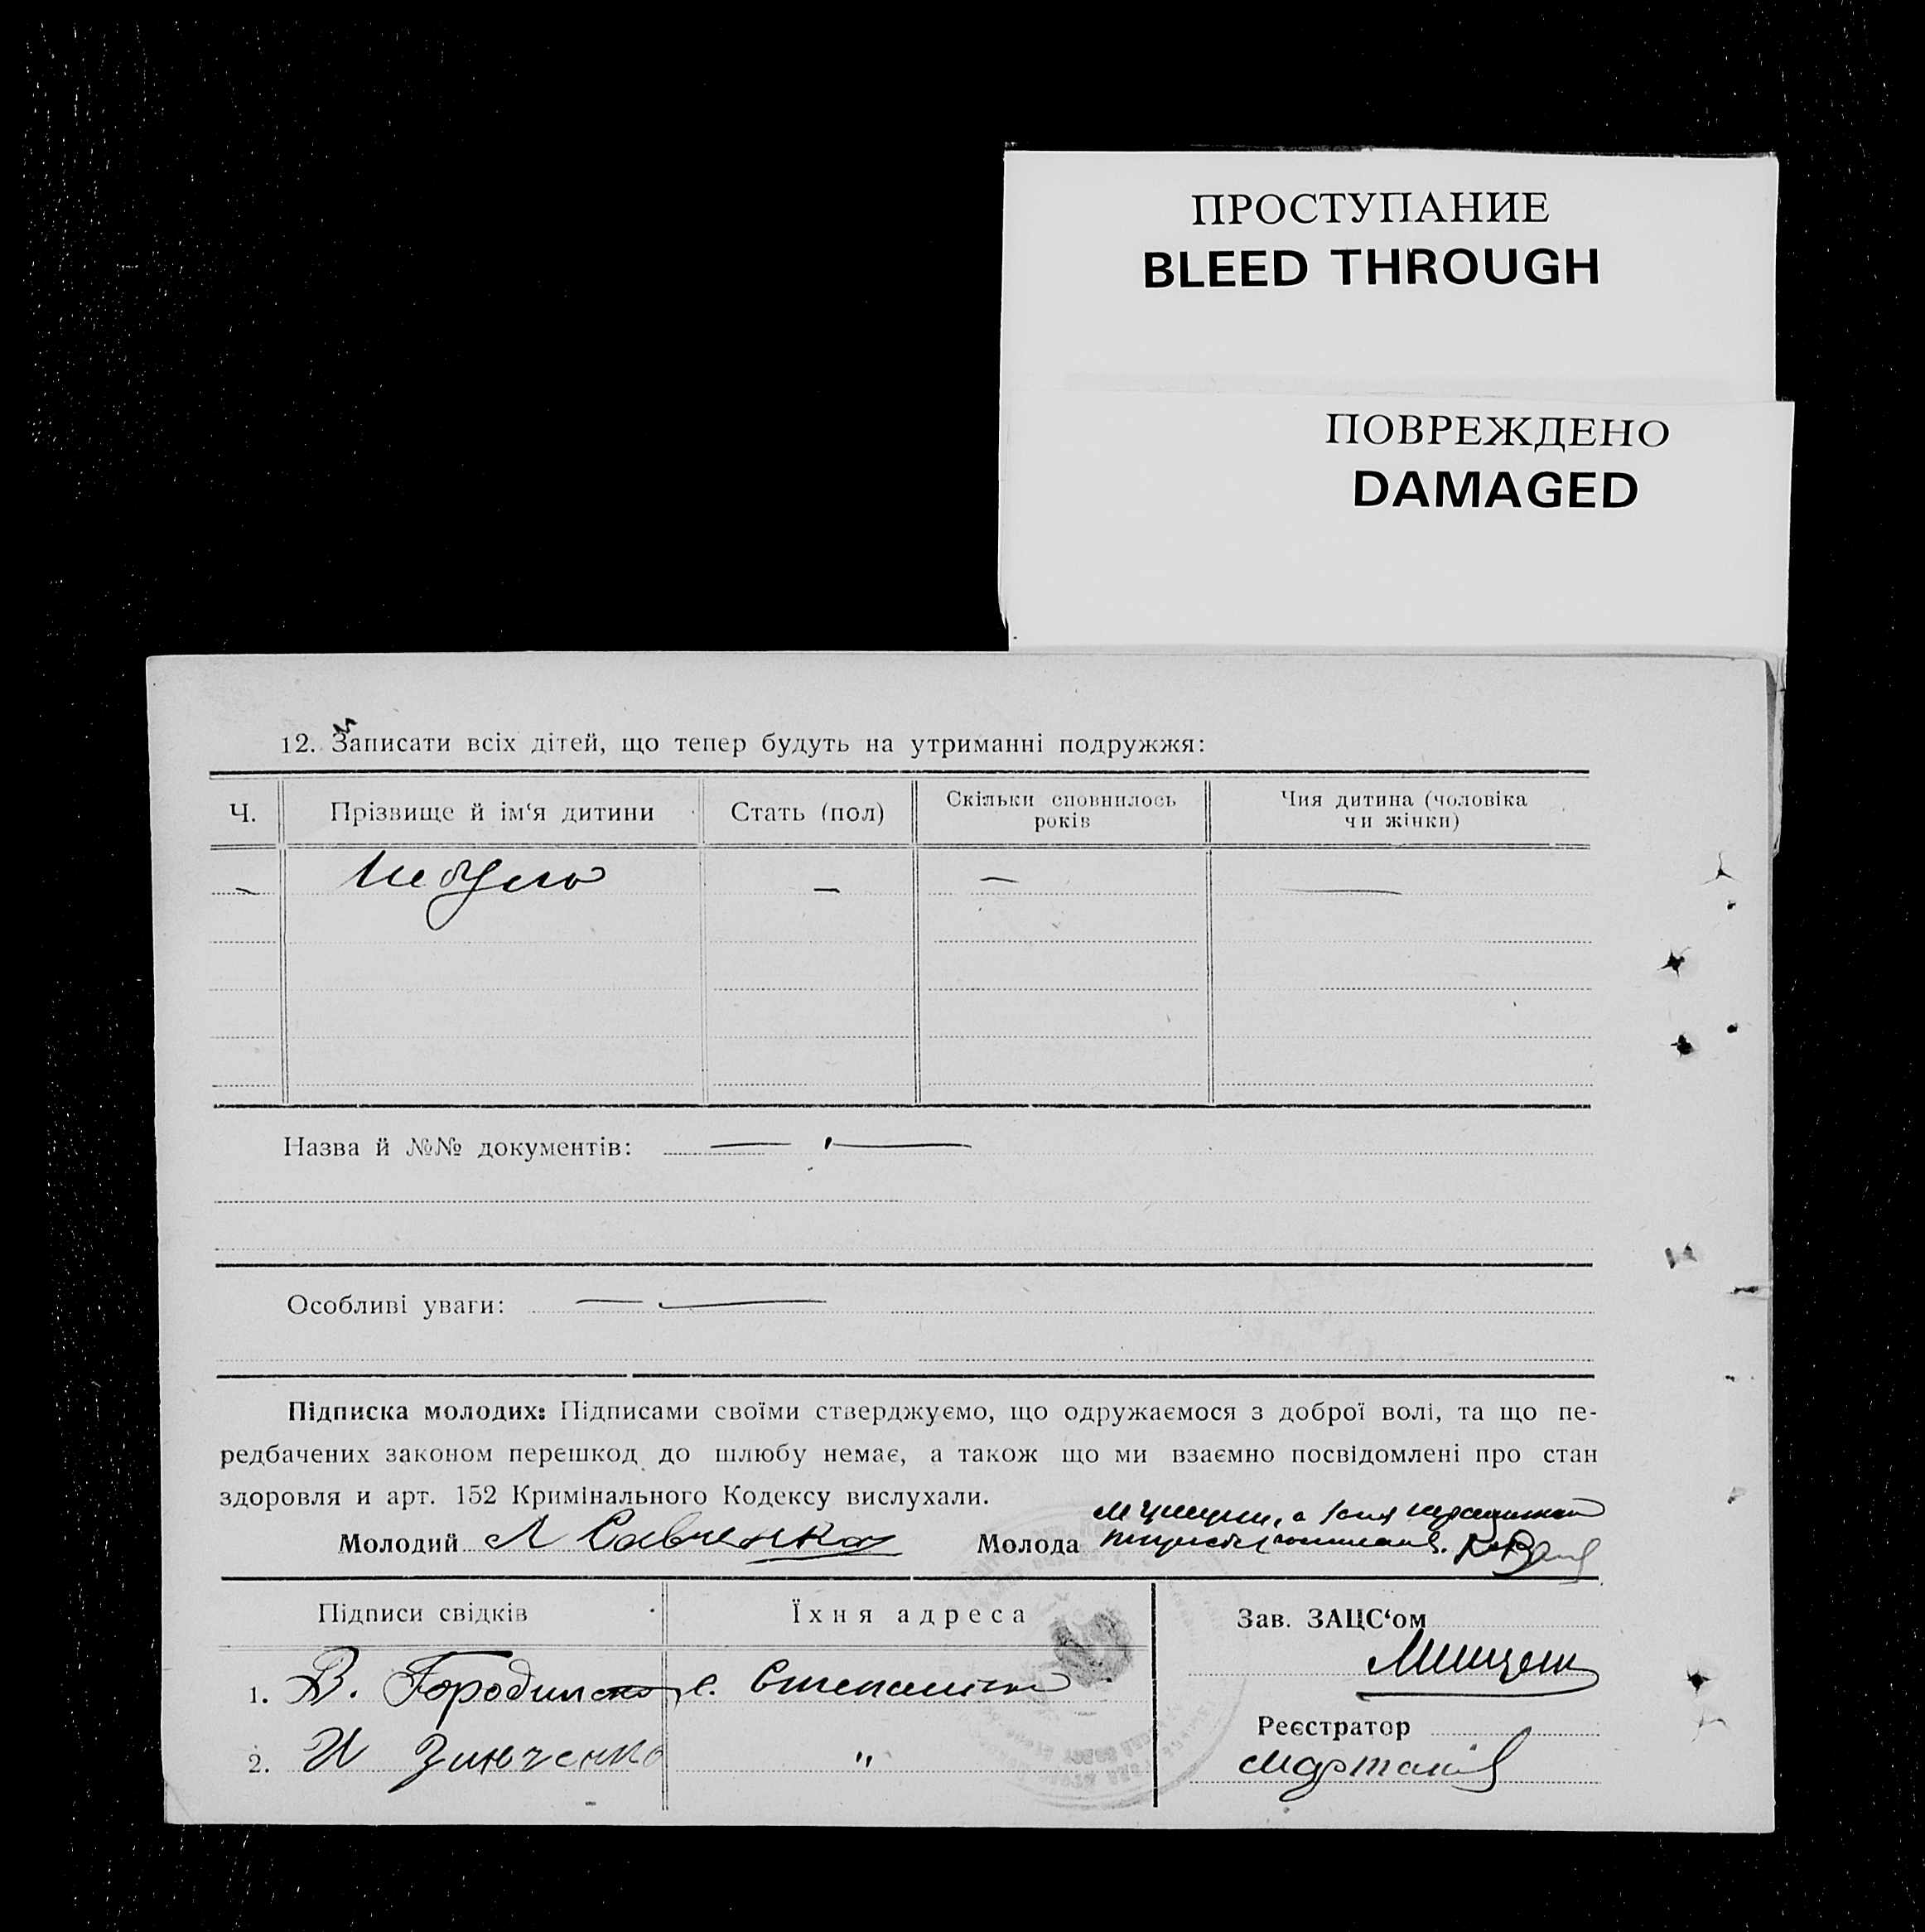 ПРОСТУПАНИЕ
BLEED THROUGH
ПОВРЕЖДЕНО
DAMAGED
12. Записати всіх дітей, що тепер будуть на утриманні подружжя:
Ч.
Прізвище й ім‘я дитини
Стать (пол)
Скільки сповнилось
років
Чия дитина (чоловіка
чи жінки)
– Не було – – —
Назва й №№ документів: — —
Особливі уваги: — —
Підписка молодих: Підписами своїми стверджуємо, що одружаємося з доброї волі, та що пе-
редбачених законом перешкод до шлюбу немає, а також що ми взаємно посвідомлені про стан
здоровля и арт. 152 Кримінального Кодексу вислухали.
Молодий Л Савченко
Молода
Підписи свідків
Їхня адреса
Зав. ЗАЦС‘ом
1. В. Городинско с.
2. И Зинченко "
Реєстратор